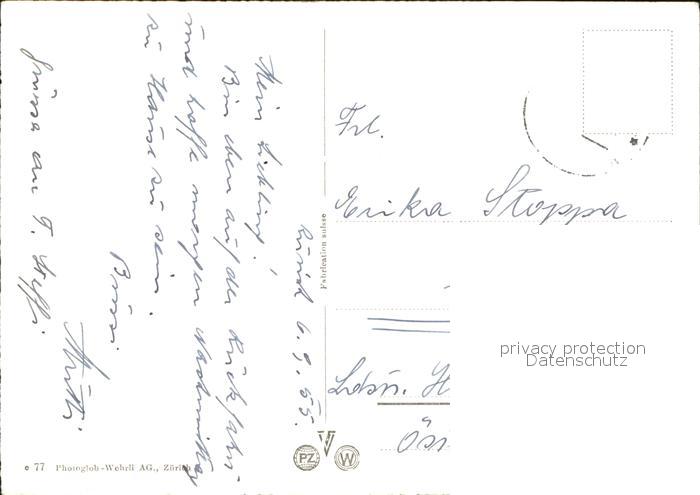 Zürich 6.9.55.
Mein Liebling!
Bin eben auf der Rückfahrt
und hoffe morgen Nachmittag
zu Hause zu sein.
Bussi
Mutti
Grüsse an T. Steffi
Frl.
Erika Stoppa
Fabrication suisse
PZ
W
e 77 Photoglob-Wehrli AG., Zürich
privacy protection
Datenschutz